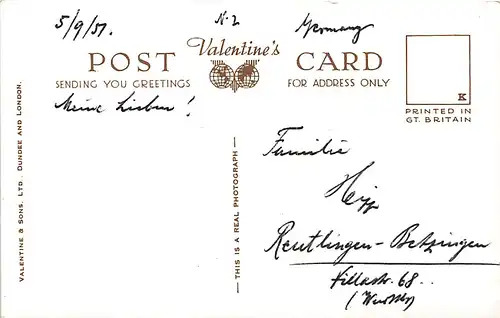 5/9/51. N-2 Germany
POST Valentine's CARD
SENDING YOU GREETINGS FOR ADDRESS ONLY
Meine Lieben!
K
PRINTED IN
GT. BRITAIN
Familie
Reutlingen-Betzingen
68
VALENTINE & SONS, LTD. DUNDEE AND LONDON.
— THIS IS A REAL PHOTOGRAPH —